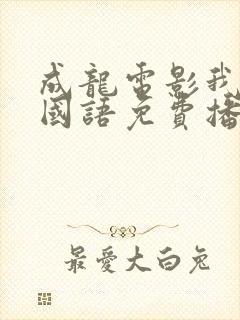 成龍電影我
國語免費播
最愛大白兔